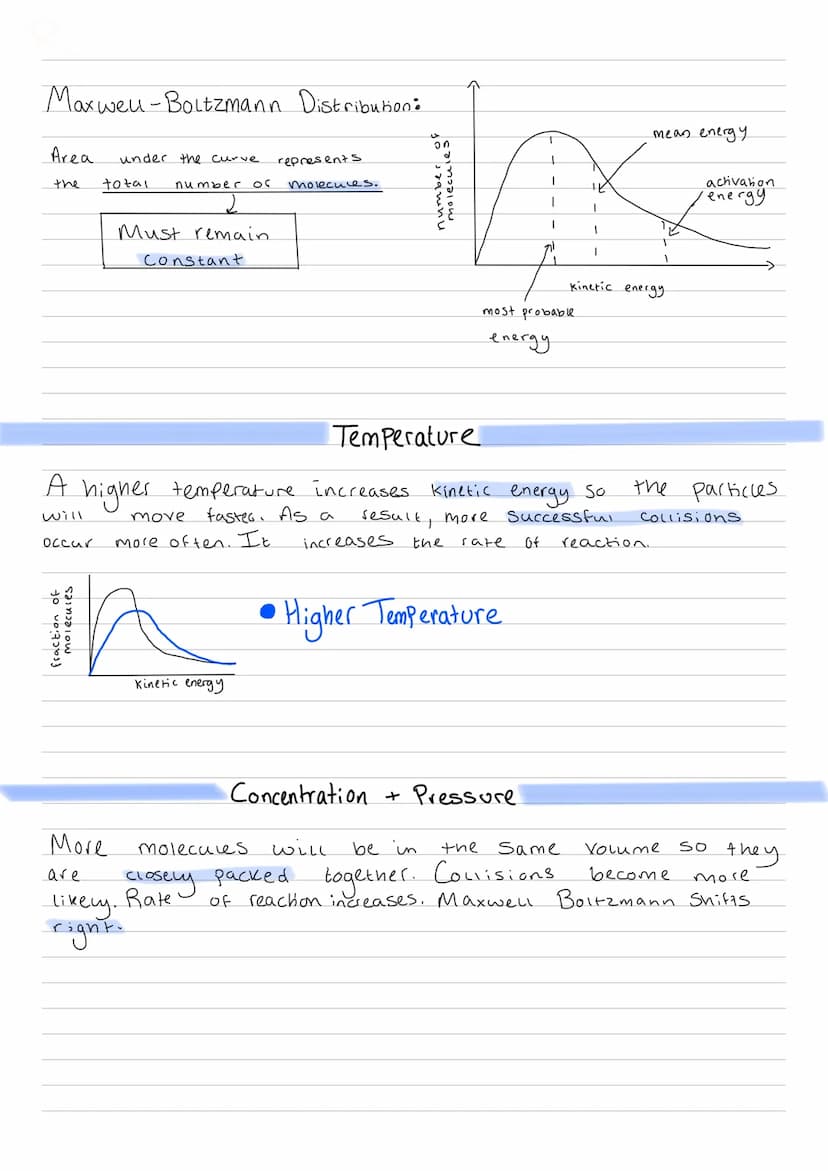 Maxwell-Boltzmann Distribution:
Area under the curve represents
the total number of molecules.
Must remain
constant
number of
molecules
mean energy
activation
energy
kinetic energy
most probable
energy
Temperature
A higher temperature increases kinetic energy so the particles
will move faster. As a result, more successful collisions
occur more often. It increases the rate of reaction.
fraction of
molecules
Kinetic energy
• Higher Temperature
Concentration + Pressure
More molecules will be in the same volume so they
are closely packed together. Collisions become more
likely. Rate of reaction increases. Maxwell Boltzmann Shifts
right.